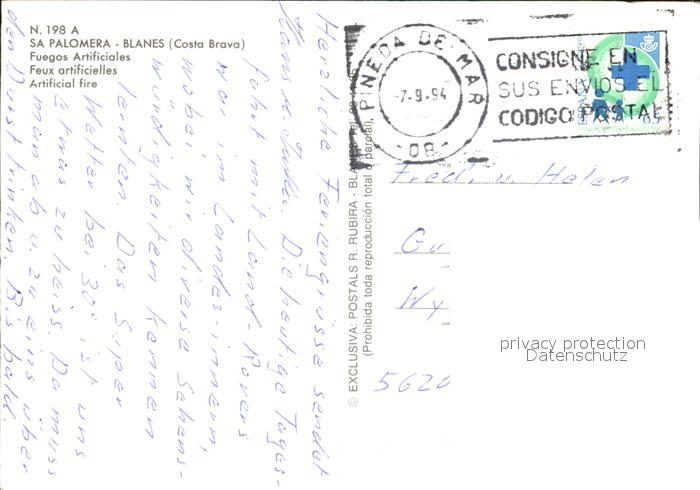 N. 198 A
SA PALOMERA - BLANES (Costa Brava)
Fuegos Artificiales
Feux artificielles
Artificial fire
Herzliche Feriengrüsse sendet
Hans u. Julia. Die heutige Tages-
fahrt mit Land-Rovers
war im Landes-innern,
wobei wir diverse Sehens-
würdigkeiten kennen
lernten. Das Super
Wetter bei 30° ist uns
etwas zu heiss. Da muss
man ab u. zu eins über
den Durst trinken. Bis bald.
© EXCLUSIVA: POSTALS R. RUBIRA - BLANES
(Prohibida toda reproducción total o parcial).
PINEDA DE MAR
-7-9-94
-08-
CONSIGNE EN
SUS ENVIOS EL
CODIGO POSTAL
ESPAÑA
65
Fred. u. Helen
Gu
Wy
5620
privacy protection
Datenschutz